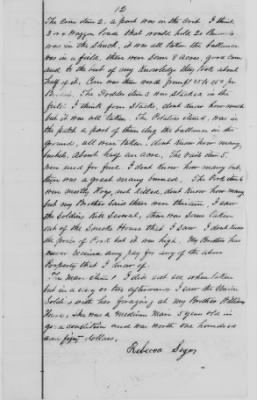 12
The Corn item 2. a part was in the Crib. I think
3 or 4 Waggon loads that would hold 20 bushels
was in the Shuck, it was all taken the ballance
was in a field, there were 8 acres, good corn
and to the best of my knowledge they took about
half of it. Corn was then worth from $1 25/100 to
The Fodder item 3 was Stacked in the
field I think four Stacks, dont know how much
but it was all taken. The Potatoes item 4, was in
the patch a part of them dug the ballance in the
ground, all were taken. dont know how many
bushels, about half an acre. The rails item 5
were used for fuel. I dont know how many but
there was a great many burned. The Pork item 6
were mostly Hogs, not killed, dont know how many
but my Brother said there were thirteen, I saw
the Soldiers kill Several, there was some taken
out of the Smoke House that I saw. I dont know
the price of Pork but it was high. My Brother has
never received any pay for any of the above
Property that I know of.
The Mare item 1. I did not see when taken
but in a day or two afterwards I saw the Union
Soldiers with her foraging at my Brother Williams
House, She was a medium Mare 5 year old in
good condition and was worth one hundred
and fifty dollars.
Rebecca